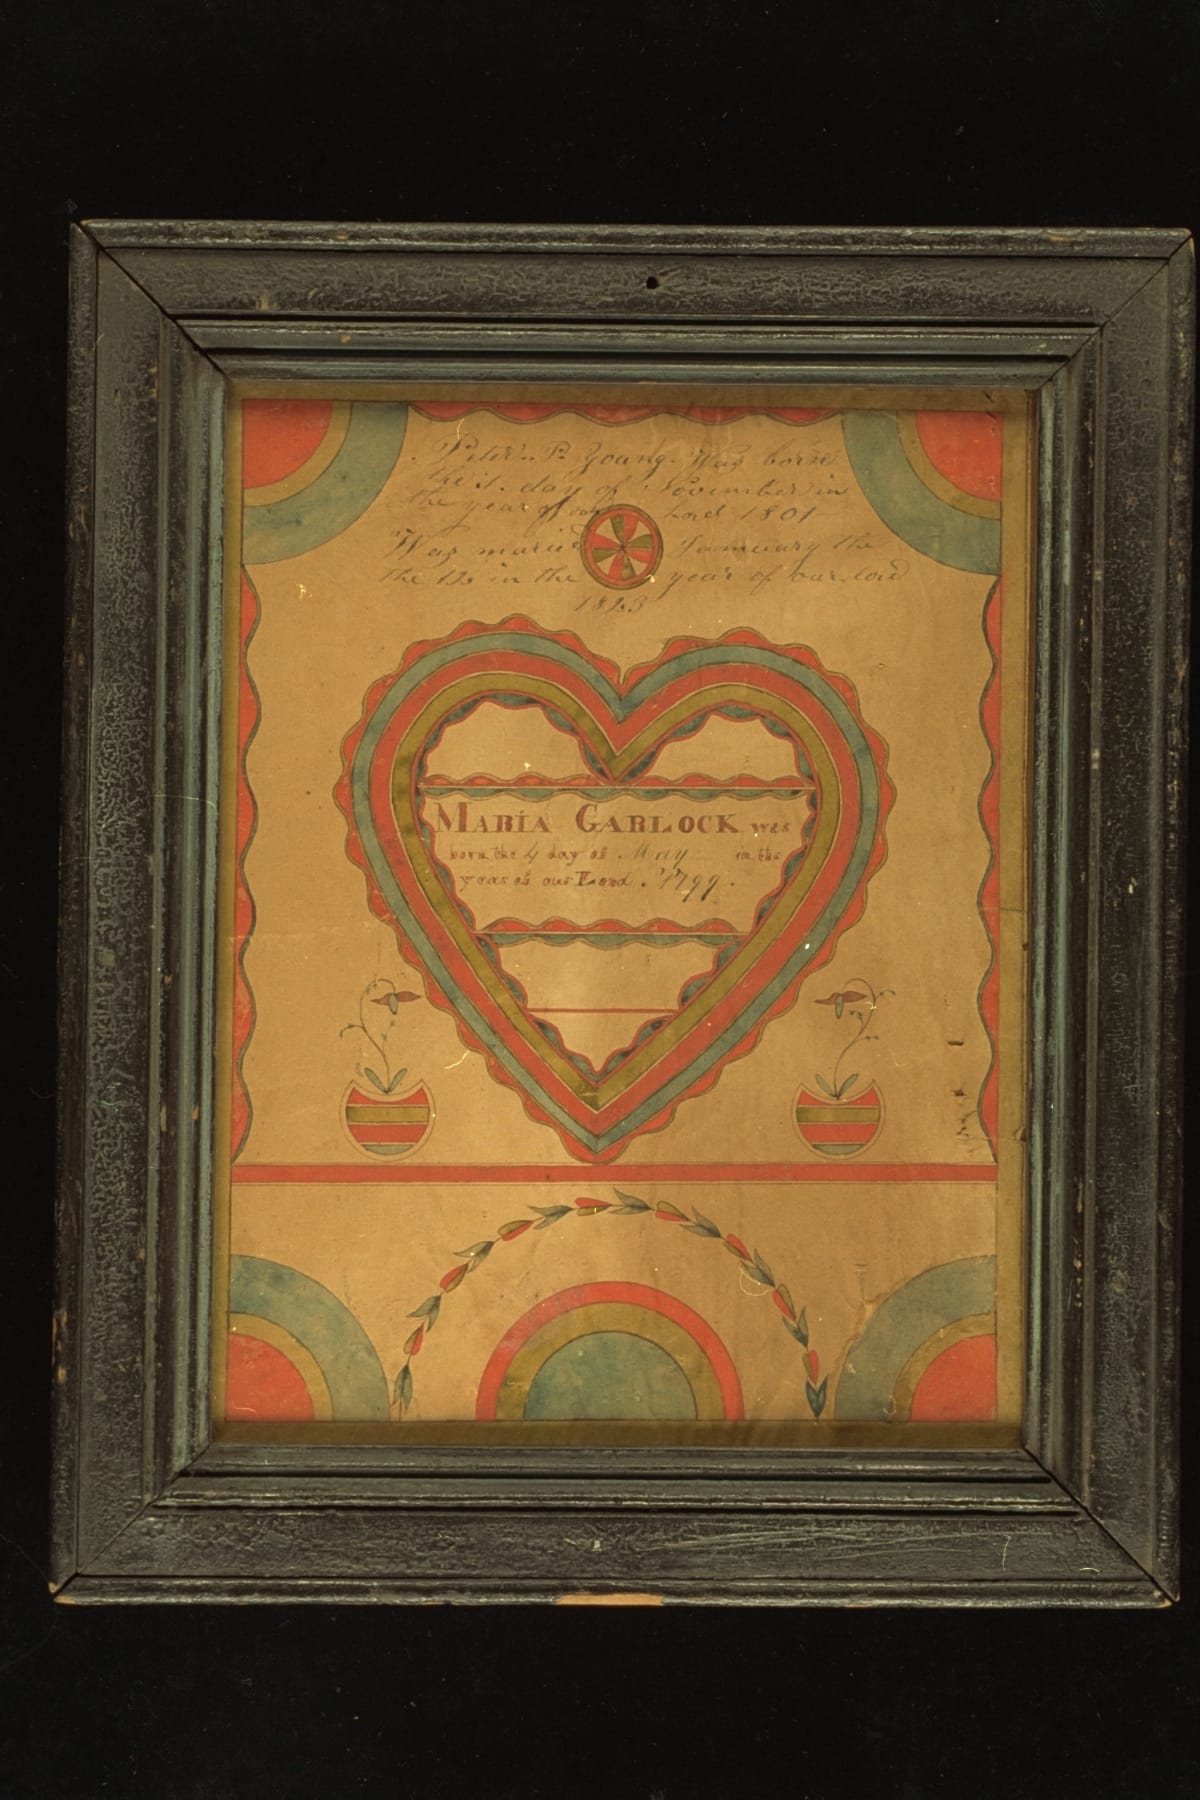 Peter P. Young. Was borne
the 1. day of November in
the year of our Lord 1801
Was maried January the
the 12 in the year of our lord
1823
MARIA GARLOCK was
born the 4 day of May in the
year of our Lord 1799.